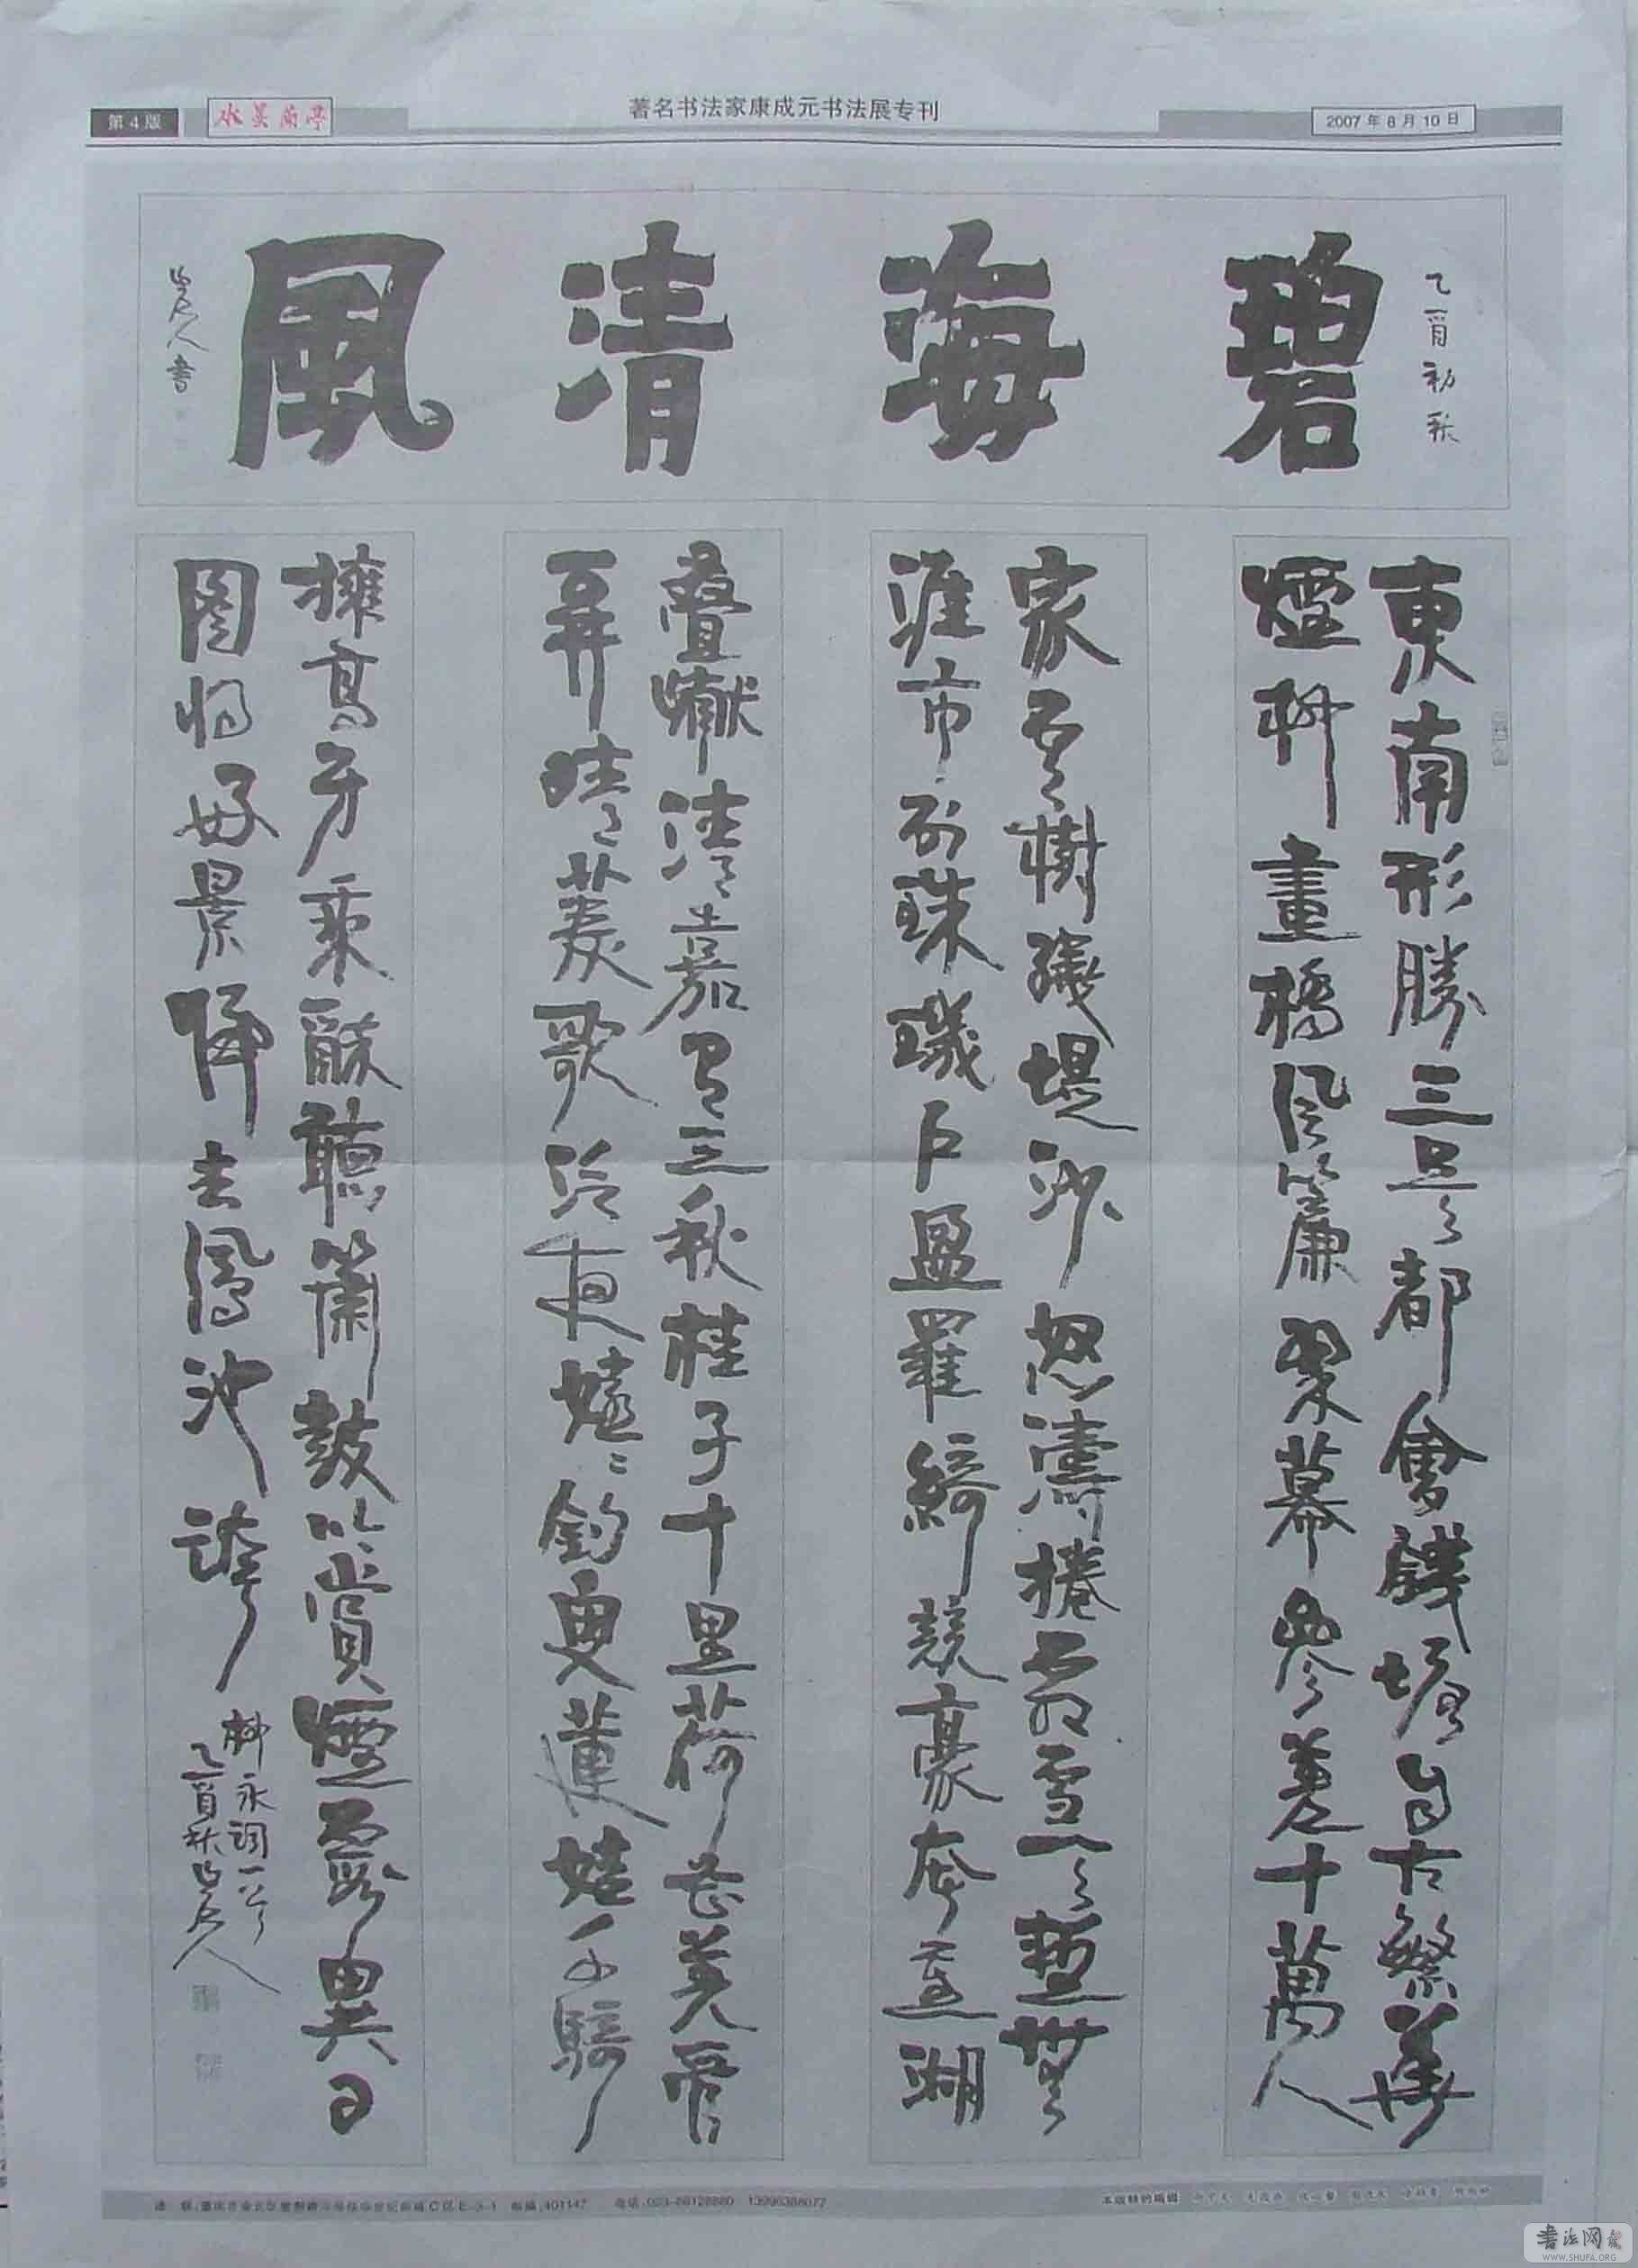 第4版
水墨蘭亭
著名书法家康成元书法展专刊
2007年8月10日
乙酉初秋
碧海清風
人書
東南形勝三吳都會錢塘自古繁華
煙柳畫橋風簾翠幕參差十萬人
家雲樹繞堤沙怒濤捲霜雪天塹無
涯市列珠璣戶盈羅綺競豪奢重湖
疊巘清嘉有三秋桂子十里荷花羌管
弄晴菱歌泛夜嬉嬉釣叟蓮娃千騎
擁高牙乘醉聽簫鼓吟賞煙霞異日
圖將好景歸去鳳池誇
柳永詞一首
乙酉秋
邮编:401147 电话:
书法网
WWW.SHUFA.ORG